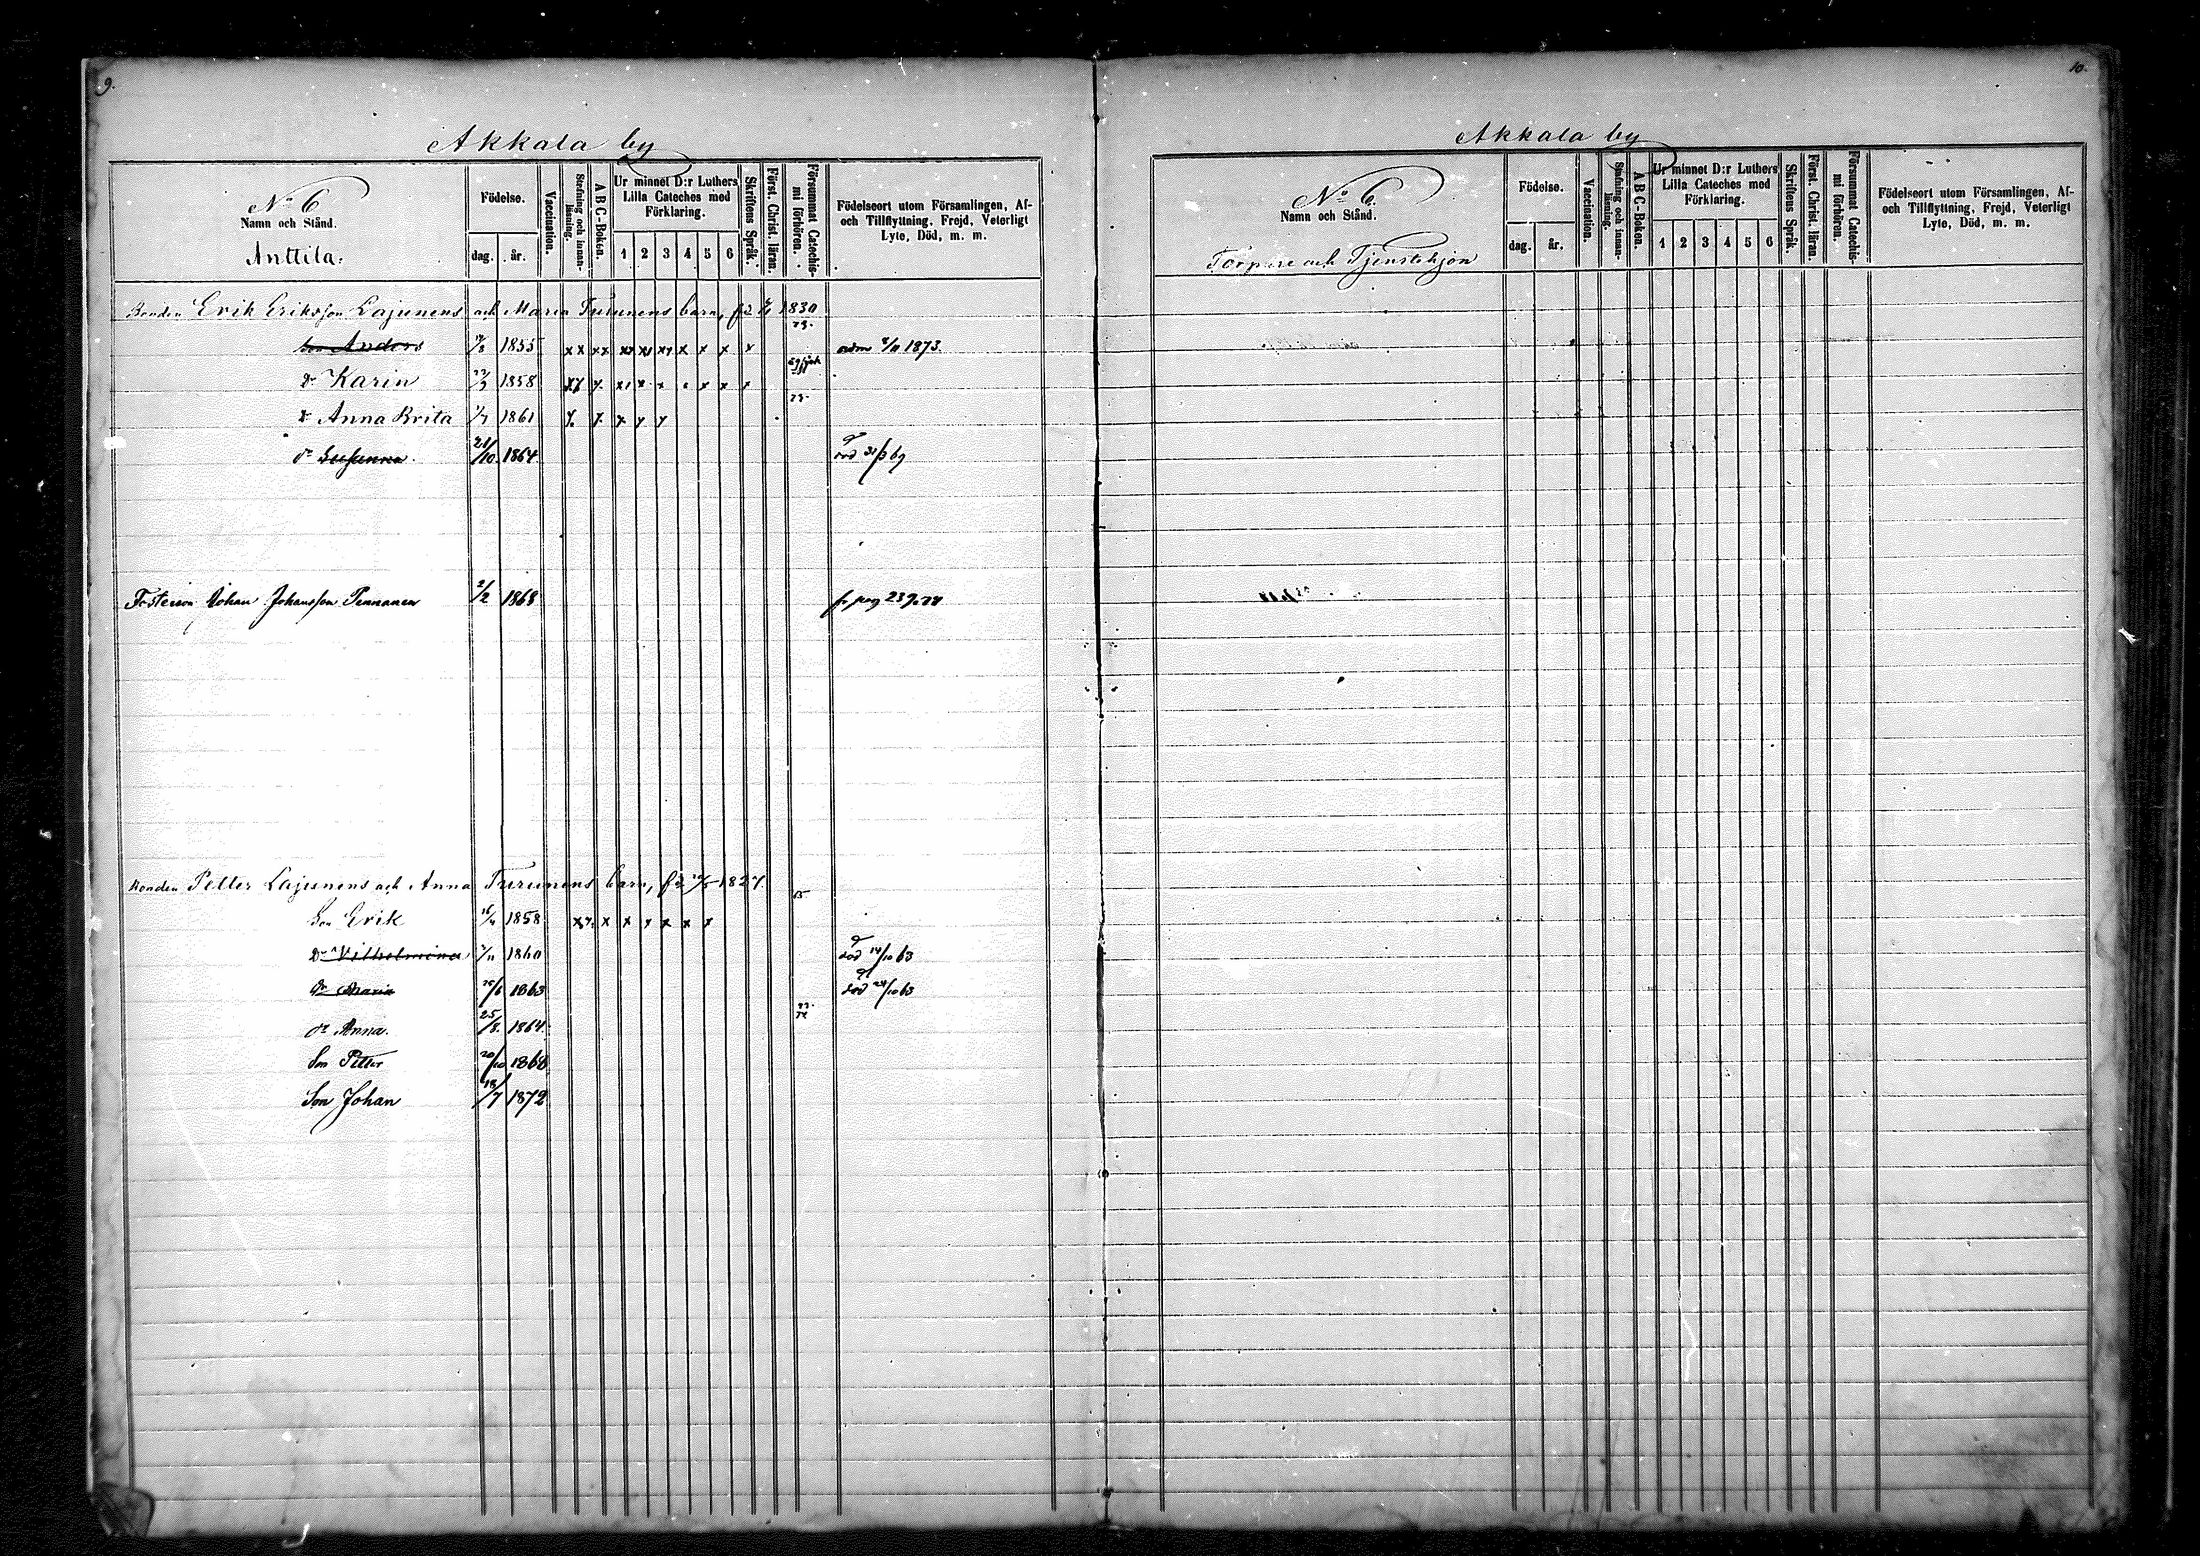 9.
Akkala by
No 6
Namn och Stånd.
Anttila.
Födelse.
dag. år.
Vaccination.
Stafning och innan-läsning.
A B C-Boken.
Ur minnet D:r Luthers
Lilla Cateches med
Förklaring.
1 2 3 4 5 6
Skriftens Språk.
Först. Christ. läran.
Försummat Catechis-mi förhören.
Födelseort utom Församlingen, Af-
och Tillflyttning, Frejd, Veterligt
Lyte, Död, m. m.
Bonden Erik Eriksson Lajunens och Maria Turunens barn, 1830
73.
Son Anders 1855 x x x x x x x x x 1873.
Dr Karin 1858 x x x x x x x
73.
Dr Anna Brita 1861 x x x x x
dr Susanna. 21/10 1864 död 31/3 69
Fosterson Johan Johansson Pennanen 2/2 1868 fr pag
Bonden Petter Lajunens och Anna Turunens barn, 1827
Son Erik 1858 x x x x x x x x
Dr Vilhelmina 1860 död 14/10 63
Dr Maria 1863 död 24/10 63
dr Anna. 25/8. 1864
Son Petter 20/10 1868
Son Johan 18/7 1872
10.
Akkala by
No 6.
Namn och Stånd.
Torpare och Tjenstehjon
Födelse.
dag. år.
Vaccination.
Stafning och innan-läsning.
A B C-Boken.
Ur minnet D:r Luthers
Lilla Cateches med
Förklaring.
1 2 3 4 5 6
Skriftens Språk.
Först. Christ. läran.
Försummat Catechis-mi förhören.
Födelseort utom Församlingen, Af-
och Tillflyttning, Frejd, Veterligt
Lyte, Död, m. m.